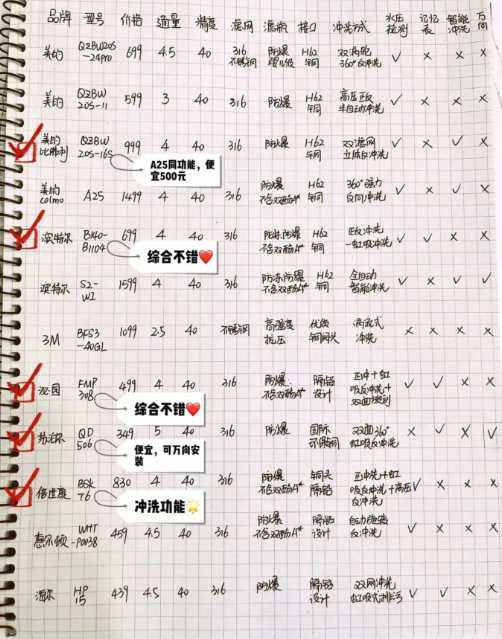 品牌 型号 价格 通量 精度 滤网 滤瓶 接口 冲洗方式 水压检测 记忆表 智能冲洗 万向
美的 QZBW20S-24pro 699 4.5 40 316不锈钢 防爆 H62铜 双涡轮360°反冲洗 √ × × ×
美的 QZBW20S-11 599 3 40 316 防爆 H62铜 高压正反半自动冲洗 √ × × ×
美的比佛利 QZBW20S-16S 999 4 40 316 防爆 H62铜 双滤网立体反冲洗 √ × √ ×
A25同功能，便宜500元
美的colmo A25 1499 4 40 316 防爆不含双酚A* H62铜 360°强力反向冲洗 √ × √ ×
滨特尔 BH40-B1104 699 4 40 316 防冻.防爆不含双酚A* H62铜 正反冲洗+虹吸冲洗 √ √ × ×
综合不错❤️
滨特尔 S2-W1 1599 4 40 316 防冻.防爆不含双酚A* H62铜 全自动智能冲洗 √ × √ √
3M BFS3-40GL 1099 2.5 40 不锈钢 高强度抗压 优质铜网头 涡流式冲洗 × × × ×
沁园 FMP308 499 4 40 316 防爆.不含双酚A* 隔铅设计 正冲+虹吸反冲洗+双面搜刮 √ √ × ×
综合不错❤️
苏泊尔 QD506 349 5 40 316 防爆 国标不锈钢 双面360°虹吸反冲洗 × √ × √
便宜，可万向安装
倍世 BSK T6 830 4 40 316 防爆不含双酚A* 铜头隔铅 正冲洗+虹吸反冲洗+高压反冲洗 √ × × ×
冲洗功能🌟
惠尔顿 WHT-P0038 459 4.5 40 316 防爆不含双酚A* 隔铅设计 自动旋转反冲洗 √ × × ×
海尔 HP15 439 4.5 40 316 防爆 隔铅设计 双网冲洗虹吸式排污 √ × × ×